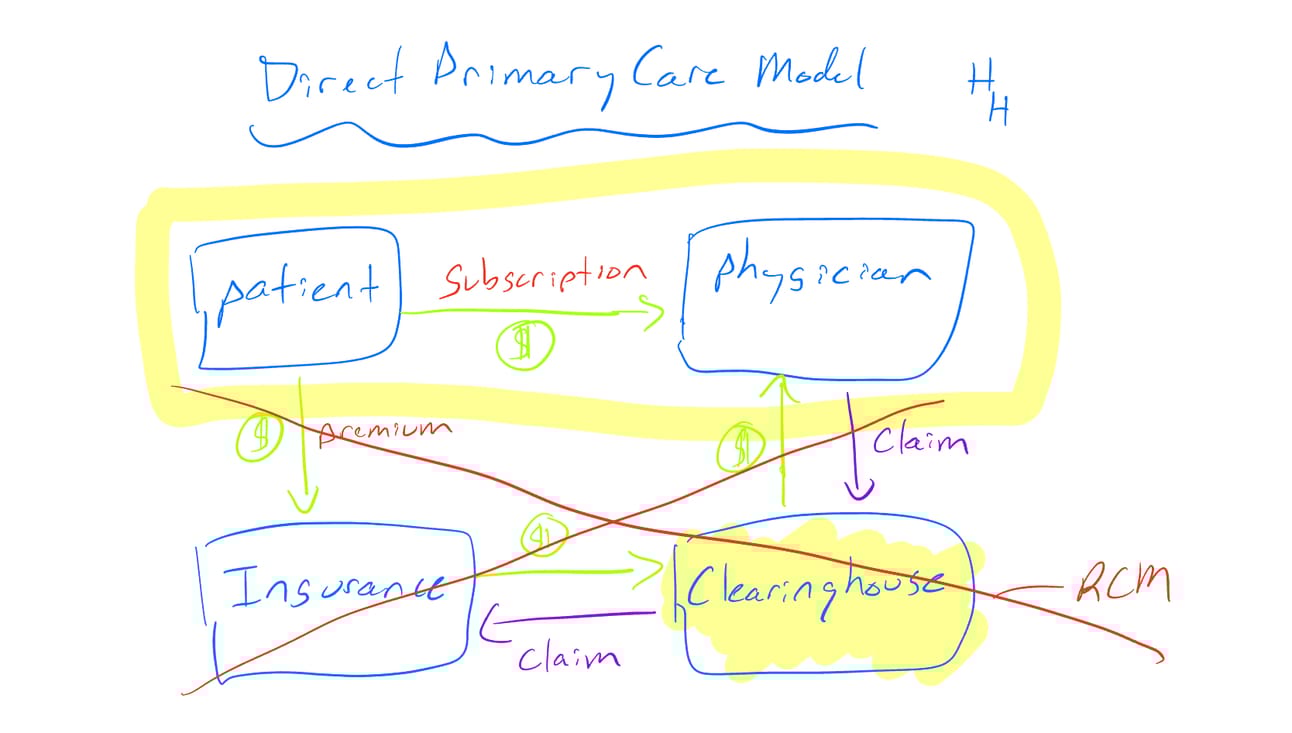 Direct Primary Care Model
H
H
patient
Subscription
$
physician
$
premium
$
Claim
Insurance
$
Clearinghouse
RCM
Claim